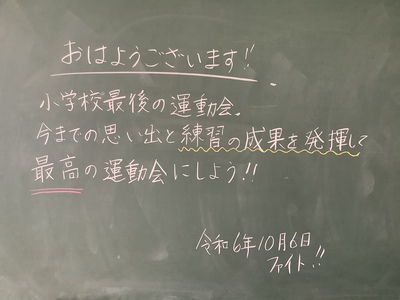 おはようございます!!
小学校最後の運動会.
今までの思い出と練習の成果を発揮して
最高の運動会にしよう!!
令和6年10月6日
ファイト!!